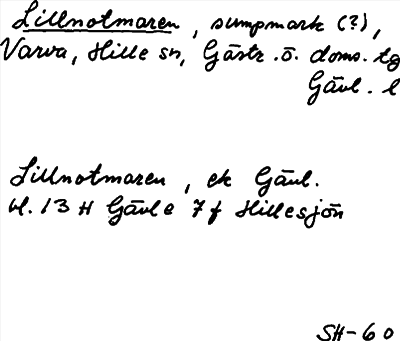 Lillnotmaren, sumpmark (?),
Varva, Hille sn, Gästr. ö. doms. tg
Gävl. l
Lillnotmaren, ek Gävl.
bl. 13 H Gävle 7 f Hillesjön
SH-60